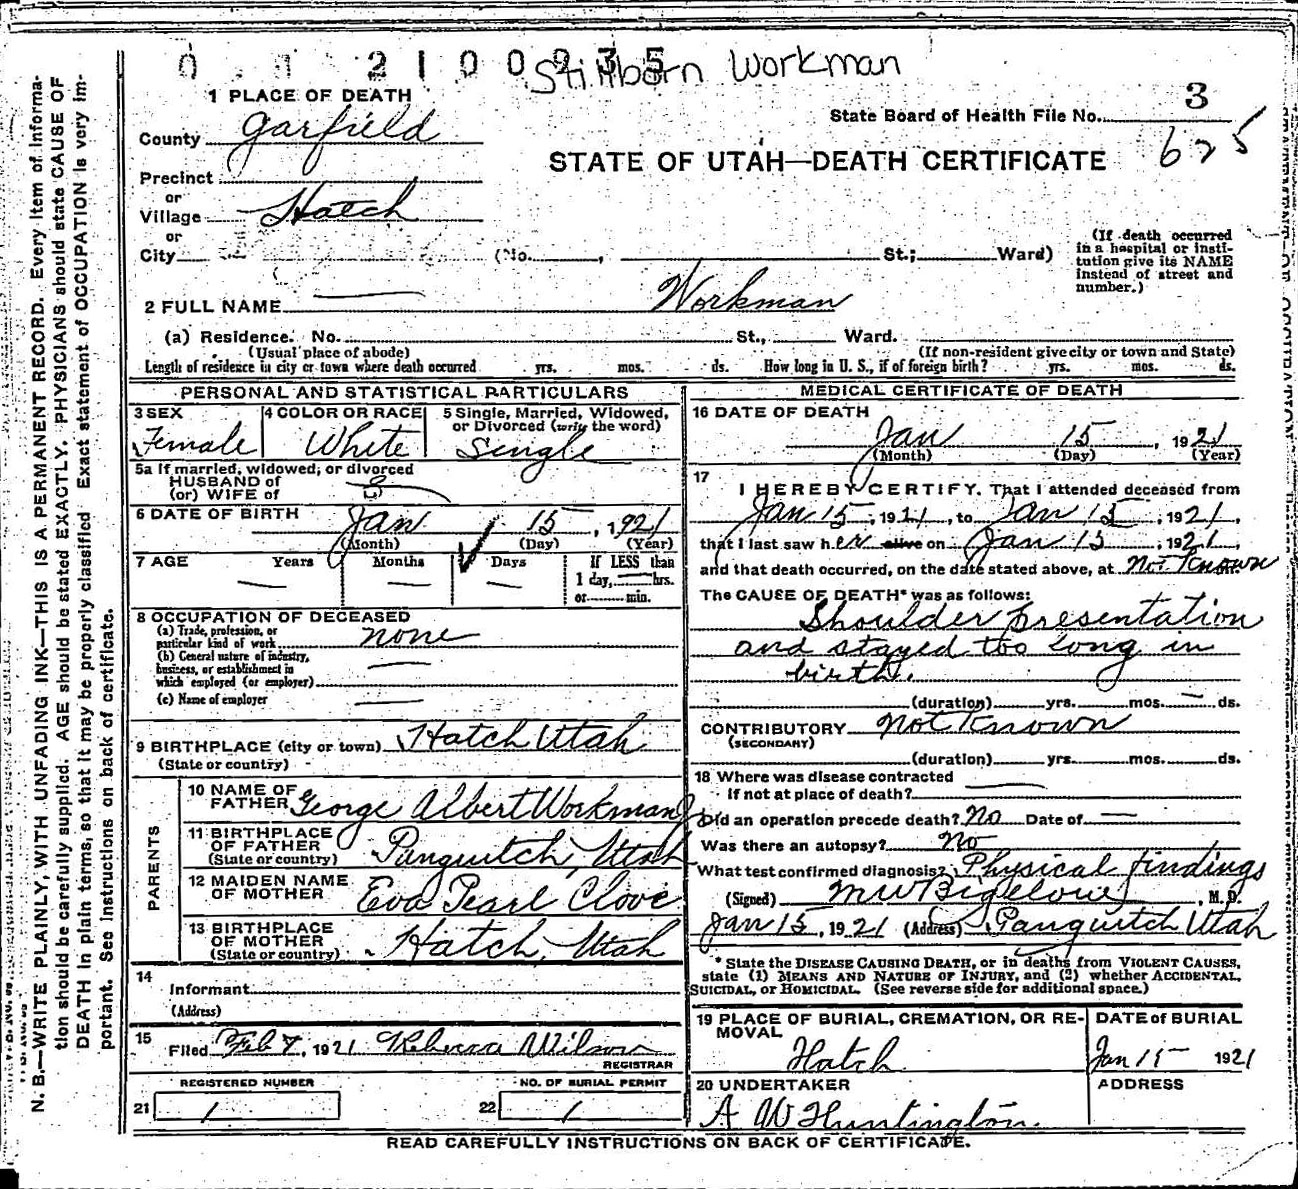 2100235
Stillborn Workman
1 PLACE OF DEATH
3
State Board of Health File No.
County Garfield
625
STATE OF UTAH—DEATH CERTIFICATE
Precinct
or
Village Hatch
or
City (No. , St.; Ward)
(If death occurred in a hospital or institution give its NAME instead of street and number.)
2 FULL NAME Workman
(a) Residence. No. St., Ward.
(Usual place of abode) (If non-resident give city or town and State)
Length of residence in city or town where death occurred yrs. mos. ds. How long in U. S., if of foreign birth? yrs. mos. ds.
PERSONAL AND STATISTICAL PARTICULARS
3 SEX Female
4 COLOR OR RACE White
5 Single, Married, Widowed, or Divorced (write the word) Single
5a If married, widowed, or divorced
HUSBAND of
(or) WIFE of
6 DATE OF BIRTH Jan 15, 1921
(Month) (Day) (Year)
7 AGE Years Months Days If LESS than
1 day, hrs.
or min.
8 OCCUPATION OF DECEASED
(a) Trade, profession, or
particular kind of work none
(b) General nature of industry,
business, or establishment in
which employed (or employer)
(c) Name of employer
9 BIRTHPLACE (city or town) Hatch Utah
(State or country)
PARENTS
10 NAME OF
FATHER George Albert Workman Jr
11 BIRTHPLACE
OF FATHER
(State or country) Panguitch, Utah
12 MAIDEN NAME
OF MOTHER Eva Pearl Clove
13 BIRTHPLACE
OF MOTHER
(State or country) Hatch, Utah
14
Informant
(Address)
15
Filed Feb 7, 1921 Rebecca Wilson
REGISTRAR
REGISTERED NUMBER NO. OF BURIAL PERMIT
21 1 22 1
MEDICAL CERTIFICATE OF DEATH
16 DATE OF DEATH
Jan 15, 1921
(Month) (Day) (Year)
17
I HEREBY CERTIFY, That I attended deceased from
Jan 15, 1921, to Jan 15, 1921,
that I last saw her alive on Jan 15, 1921,
and that death occurred, on the date stated above, at Not Known m.
The CAUSE OF DEATH* was as follows:
Shoulder presentation
and stayed too long in
birth.
(duration) yrs. mos. ds.
CONTRIBUTORY Not Known
(SECONDARY)
(duration) yrs. mos. ds.
18 Where was disease contracted
If not at place of death?
Did an operation precede death? No Date of
Was there an autopsy? No
What test confirmed diagnosis? Physical findings
(Signed) M W Bigelow, M. D.
Jan 15, 1921 (Address) Panguitch Utah
* State the DISEASE CAUSING DEATH, or in deaths from VIOLENT CAUSES,
state (1) MEANS AND NATURE OF INJURY, and (2) whether ACCIDENTAL,
SUICIDAL, or HOMICIDAL. (See reverse side for additional space.)
19 PLACE OF BURIAL, CREMATION, OR REMOVAL
Hatch
DATE of BURIAL
Jan 15 1921
20 UNDERTAKER
A W Huntington
ADDRESS
READ CAREFULLY INSTRUCTIONS ON BACK OF CERTIFICATE.
N. B.—WRITE PLAINLY, WITH UNFADING INK—THIS IS A PERMANENT RECORD. Every item of informa-
tion should be carefully supplied. AGE should be stated EXACTLY. PHYSICIANS should state CAUSE OF
DEATH in plain terms, so that it may be properly classified Exact statement of OCCUPATION is very im-
portant. See instructions on back of certificate.